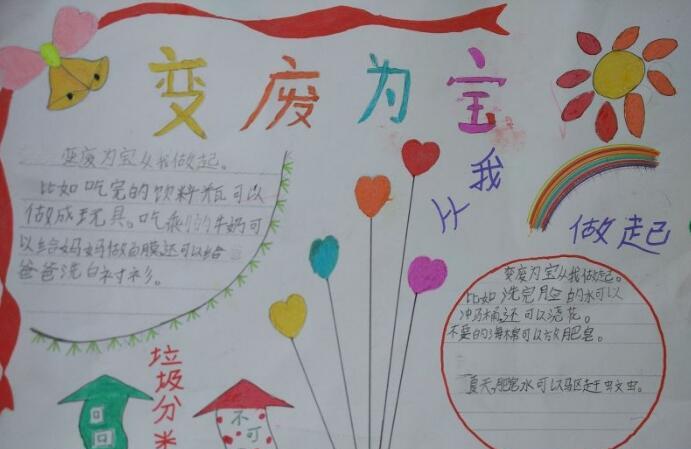 变废为宝
从我
做起
变废为宝从我做起。
比如吃完的饮料瓶可以
做成玩具。吃剩的牛奶可
以给妈妈做面膜,还可以给
爸爸洗白衬衫。
变废为宝从我做起。
比如洗完脸的水可以
冲马桶,还可以浇花。
不要的海棉可以放肥皂。
夏天,肥皂水可以驱赶蚊虫。
垃圾分类
回
不可